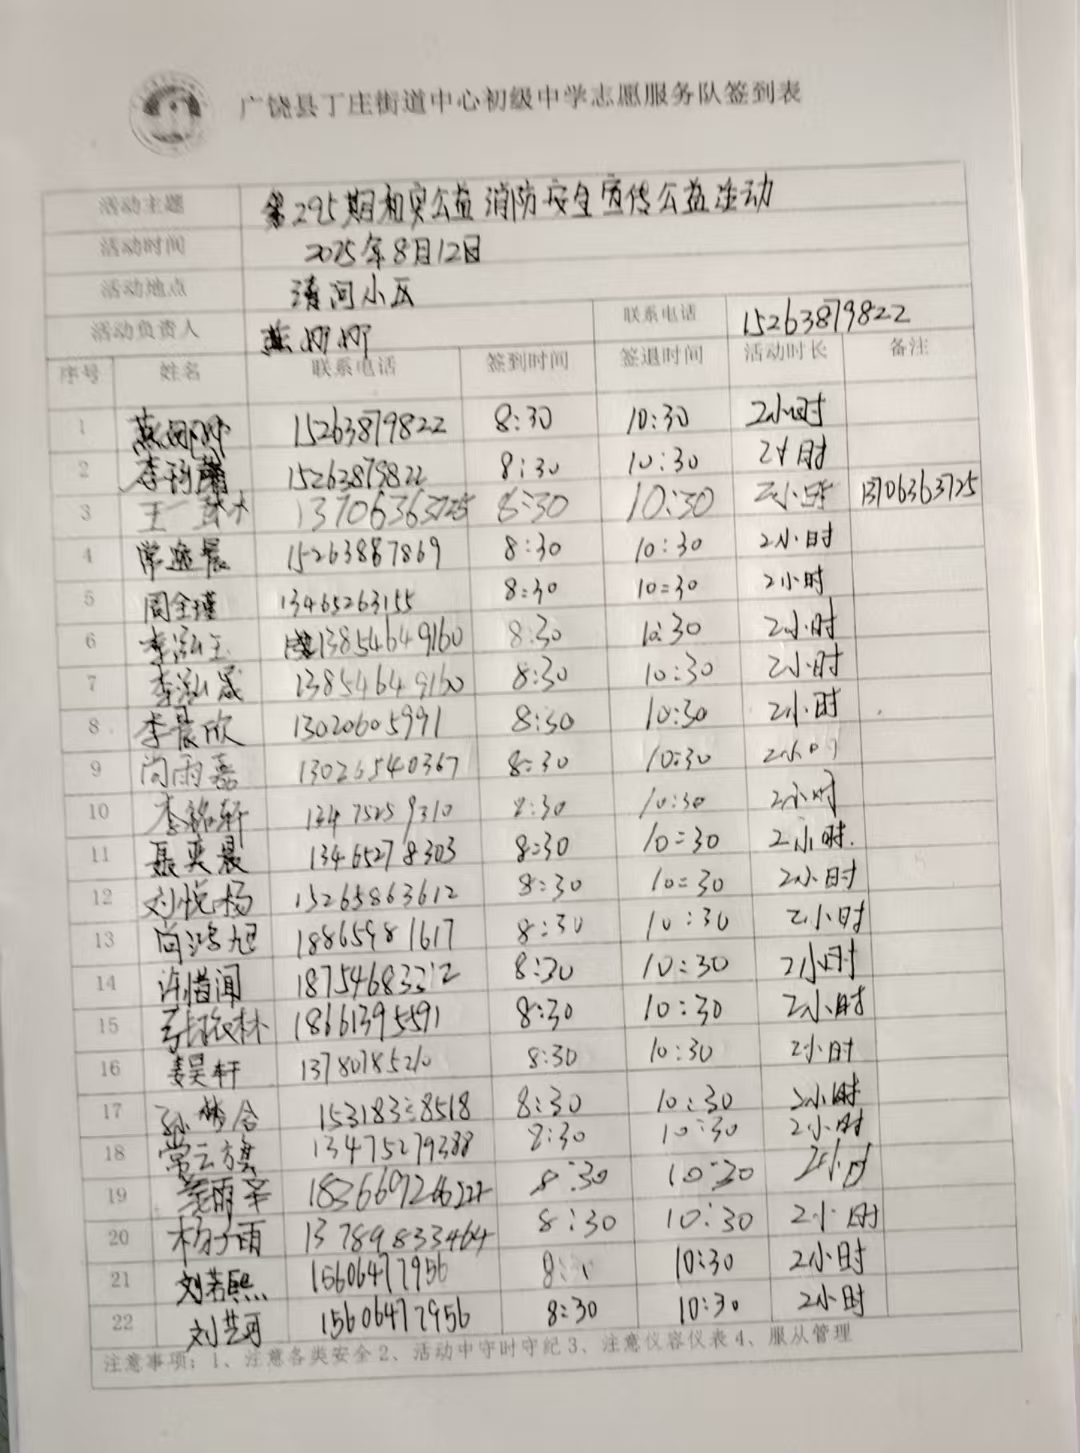 广饶县丁庄街道中心初级中学志愿服务队签到表
活动主题 第295期和实公益消防安全宣传公益活动
活动时间 2025年8月12日
活动地点 清河小区
活动负责人 燕 联系电话 15263879822
序号 姓名 联系电话 签到时间 签退时间 活动时长 备注
1 燕 15263879822 8:30 10:30 2小时
2 李 15263879822 8:30 10:30 2小时
3 王 13706363725 8:30 10:30 2小时 13706363725
4 常逸晨 15263887869 8:30 10:30 2小时
5 周全瑾 13465263155 8:30 10:30 2小时
6 李泓玉 13854649160 8:30 10:30 2小时
7 李泓晟 13854649160 8:30 10:30 2小时
8 李晨欣 13020605991 8:30 10:30 2小时
9 尚雨嘉 13026540367 8:30 10:30 2小时
10 李铭轩 13475259310 8:30 10:30 2小时
11 聂奕晨 13465278303 8:30 10:30 2小时.
12 刘悦杨 15265863612 8:30 10:30 2小时
13 尚鸿旭 18865981617 8:30 10:30 2小时
14 许惜闻 8:30 10:30 2小时
15 18661395591 8:30 10:30 2小时
16 姜昊轩 13780785210 8:30 10:30 2小时
17 孙 8:30 10:30 2小时
18 常云旗 13475279388 8:30 10:30 2小时
19 8:30 10:30 2小时
20 杨子雨 8:30 10:30 2小时
21 刘若熙 15606477956 10:30 2小时
22 刘艺可 15606477956 8:30 10:30 2小时
注意事项：1、注意各类安全2、活动中守时守纪3、注意仪容仪表4、服从管理